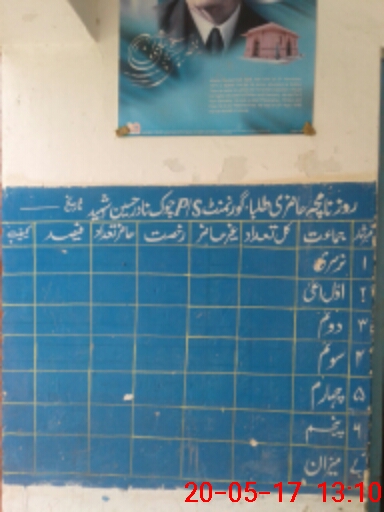 روزنامچہ حاضری طلباء گورنمنٹ P/S چوک نادر حسین شہید تاریخ
نمبرشمار جماعت کل تعداد غیر حاضر رخصت حاضر تعداد فیصد کیفیت
۱ نرسری
۲ اوّل اعلیٰ
۳ دوئم
۴ سوئم
۵ چہارم
۶ پنجم
۷ میزان
20-05-17 13:10